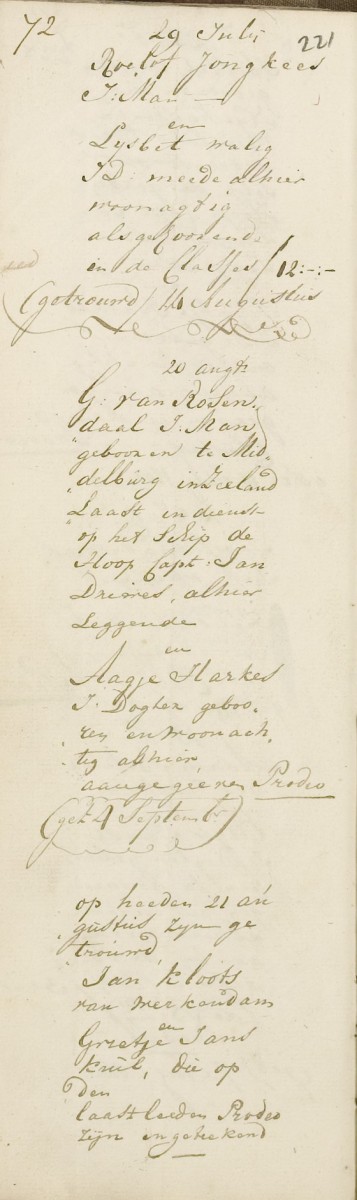 72
221
29 Julÿ
Roelof Jongkees
J: Man
en
Lysbet walig
J D: meede alhier
woonagtig
als gehoorende
in de Classes / 12:-:-
(getrouwd / 14 Augustus
20 augts
G: van Rosen„
daal J: Man
„gebooren te Mid„
„delburg in Zeeland
Laast in dienst
op het Schip de
Hoop Capt: Jan
Driwes, alhier
Leggende
en
Aagje Harkes
J: Doghter geboo„
ren en woonach„
tig alhier
aangegeeven Prodeo
(getr 4 Septemb:)
op heeden 21 au
gustus zyn ge
trouwd
Jan Kloots
van Werkendam
en
Grietje Jans
Kuil, die op
den
laastleeden Prodeo
zijn ingetekend